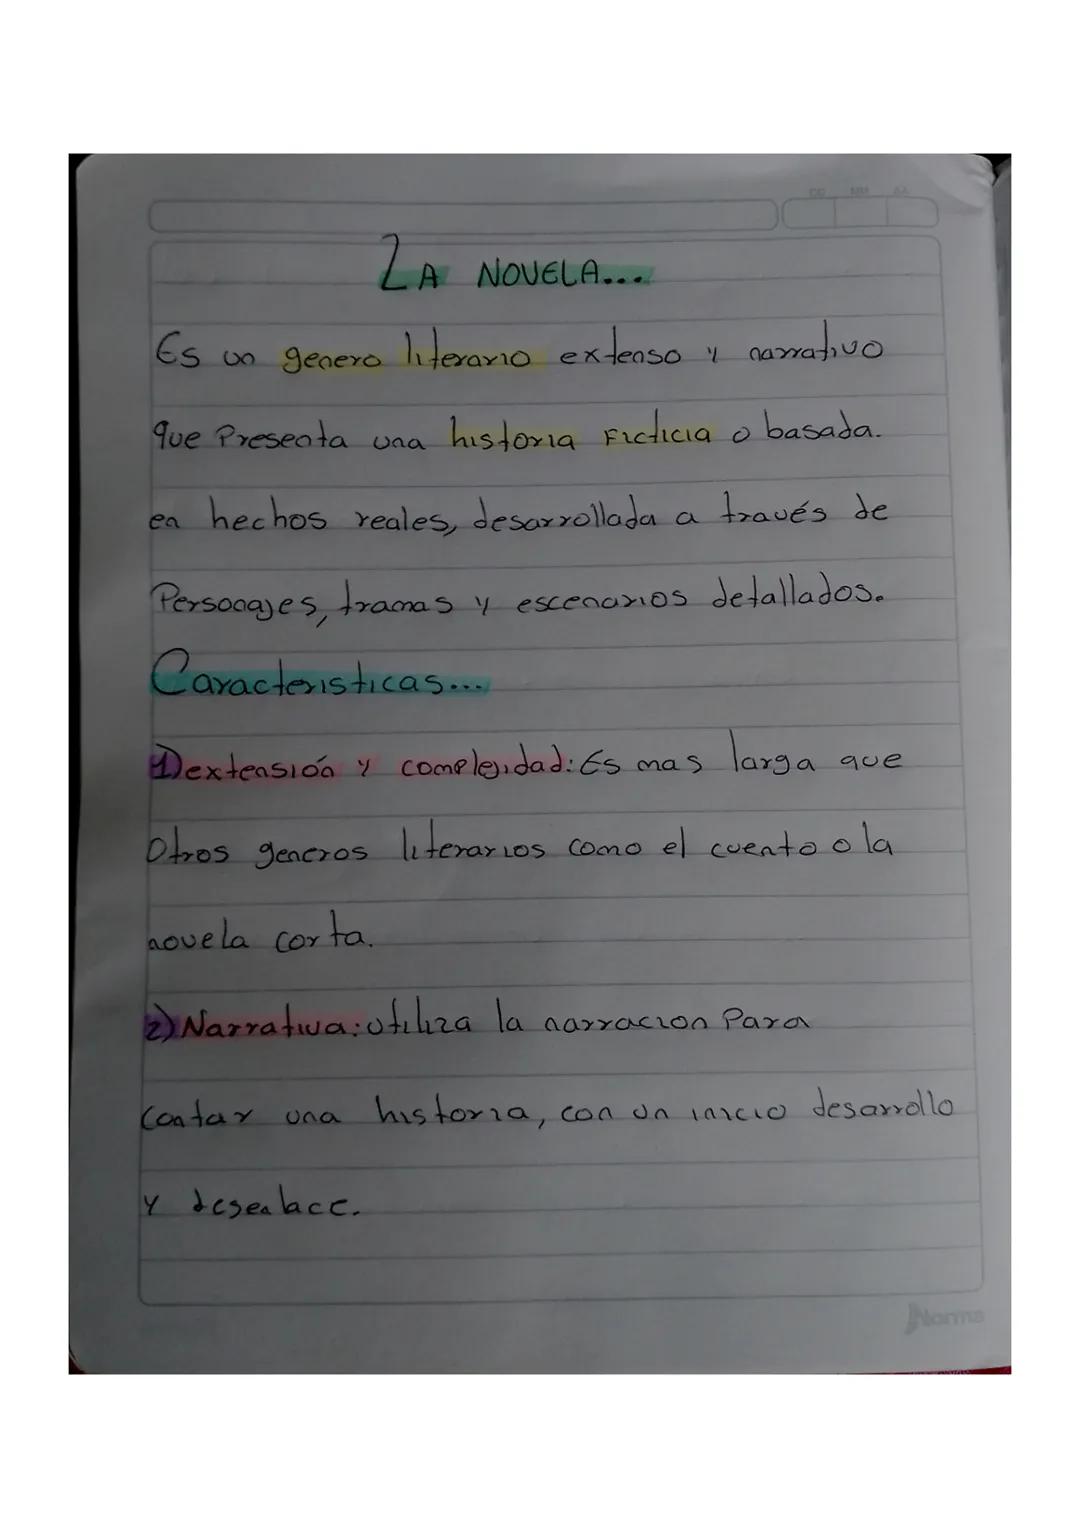 DD MM AA
LA NOVELA...
Es un genero literario extenso y narrativo
que Presenta una historia Ficticia o basada.
en hechos reales, desarrollada a través de
Personajes, tramas y escenarios detallados.
Caracteristicas...
1) extensión y complejidad: Es mas larga que
Otros generos literarios como el cuento o la
novela corta.
2) Narrativa: utiliza la narracion Para
Contar una historia, con un inicio desarrollo
y desenlace.
Norma